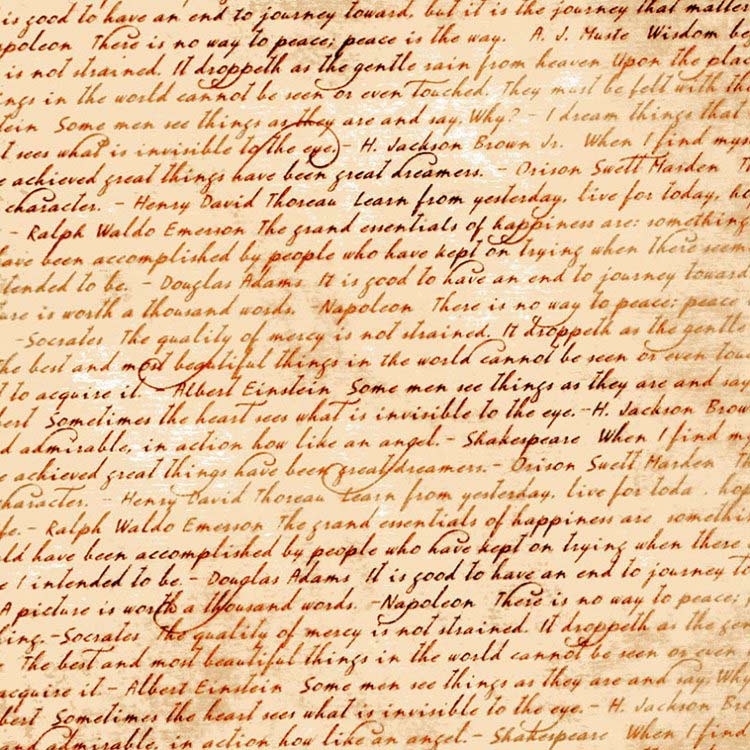 is good to have an end to journey toward, but it is the journey that matters
apoleon There is no way to peace; peace is the way. A. J. Muste Wisdom be
is not strained. It droppeth as the gentle rain from heaven Upon the plac
ings in the world cannot be seen or even touched. They must be felt with th
tein Some men see things as they are and say, Why? - I dream things that
t sees what is invisible to the eye. - H. Jackson Brown Jr. When I find mys
e achieved great things have been great dreamers. - Orison Swett Marden Th
character. - Henry David Thoreau Learn from yesterday, live for today, ho
- Ralph Waldo Emerson The grand essentials of happiness are: something
have been accomplished by people who have kept on trying when there seem
tended to be. - Douglas Adams It is good to have an end to journey toward
ure is worth a thousand words. - Napoleon There is no way to peace; peace
-Socrates The quality of mercy is not strained. It droppeth as the gentle
he best and most beautiful things in the world cannot be seen or even tou
t to acquire it. - Albert Einstein Some men see things as they are and say
bert Sometimes the heart sees what is invisible to the eye. -H. Jackson Brow
d admirable, in action how like an angel. - Shakespeare When I find my
e achieved great things have been great dreamers. - Orison Swett Marden Th
character. - Henry David Thoreau Learn from yesterday, live for toda , hop
fe. - Ralph Waldo Emerson The grand essentials of happiness are somethin
ld have been accomplished by people who have kept on trying when there
e I intended to be. - Douglas Adams It is good to have an end to journey to
A picture is worth a thousand words. -Napoleon There is no way to peace;
hing. -Socrates The quality of mercy is not strained. It droppeth as the gen
The best and most beautiful things in the world cannot be seen or even
acquire it. - Albert Einstein Some men see things as they are and say, Why
bert Sometimes the heart sees what is invisible to the eye. - H. Jackson Bro
and admirable, in action how like an angel. - Shakespeare When I find